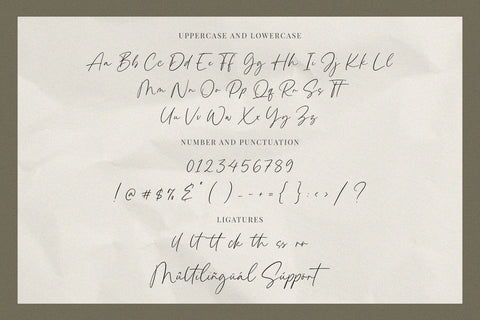 UPPERCASE AND LOWERCASE
Aa Bb Cc Dd Ee Ff Gg Hh Ii Jj Kk Ll
Mm Nn Oo Pp Qq Rr Ss Tt
Uu Vv Ww Xx Yy Zz
NUMBER AND PUNCTUATION
0123456789
! @ # $ % & * ( ) _ - + = { } : < > / ?
LIGATURES
ll lt tt ck th ss rr
Mûltilingual Súpport